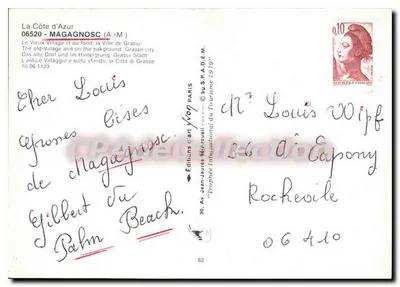 La Côte d'Azur
06520 - MAGAGNOSC (A.-M.)
Le Vieux Village et au fond, la Ville de Grasse
The old Village and on the background, Grasse-city
Das alte Dorf und im Hintergrund, Grasse Stadt
No 06 1193
Cher Louis
Grosses bises
de Magagnosc
Gilbert du
Palm Beach.
Editions d'art YVON PARIS
30, Av. Jean-Jaurès
© by S.P.A.D.E.M.
"Trophée International du Tourisme 1979"
0,10
Mr Louis
Rocheville
06410
82